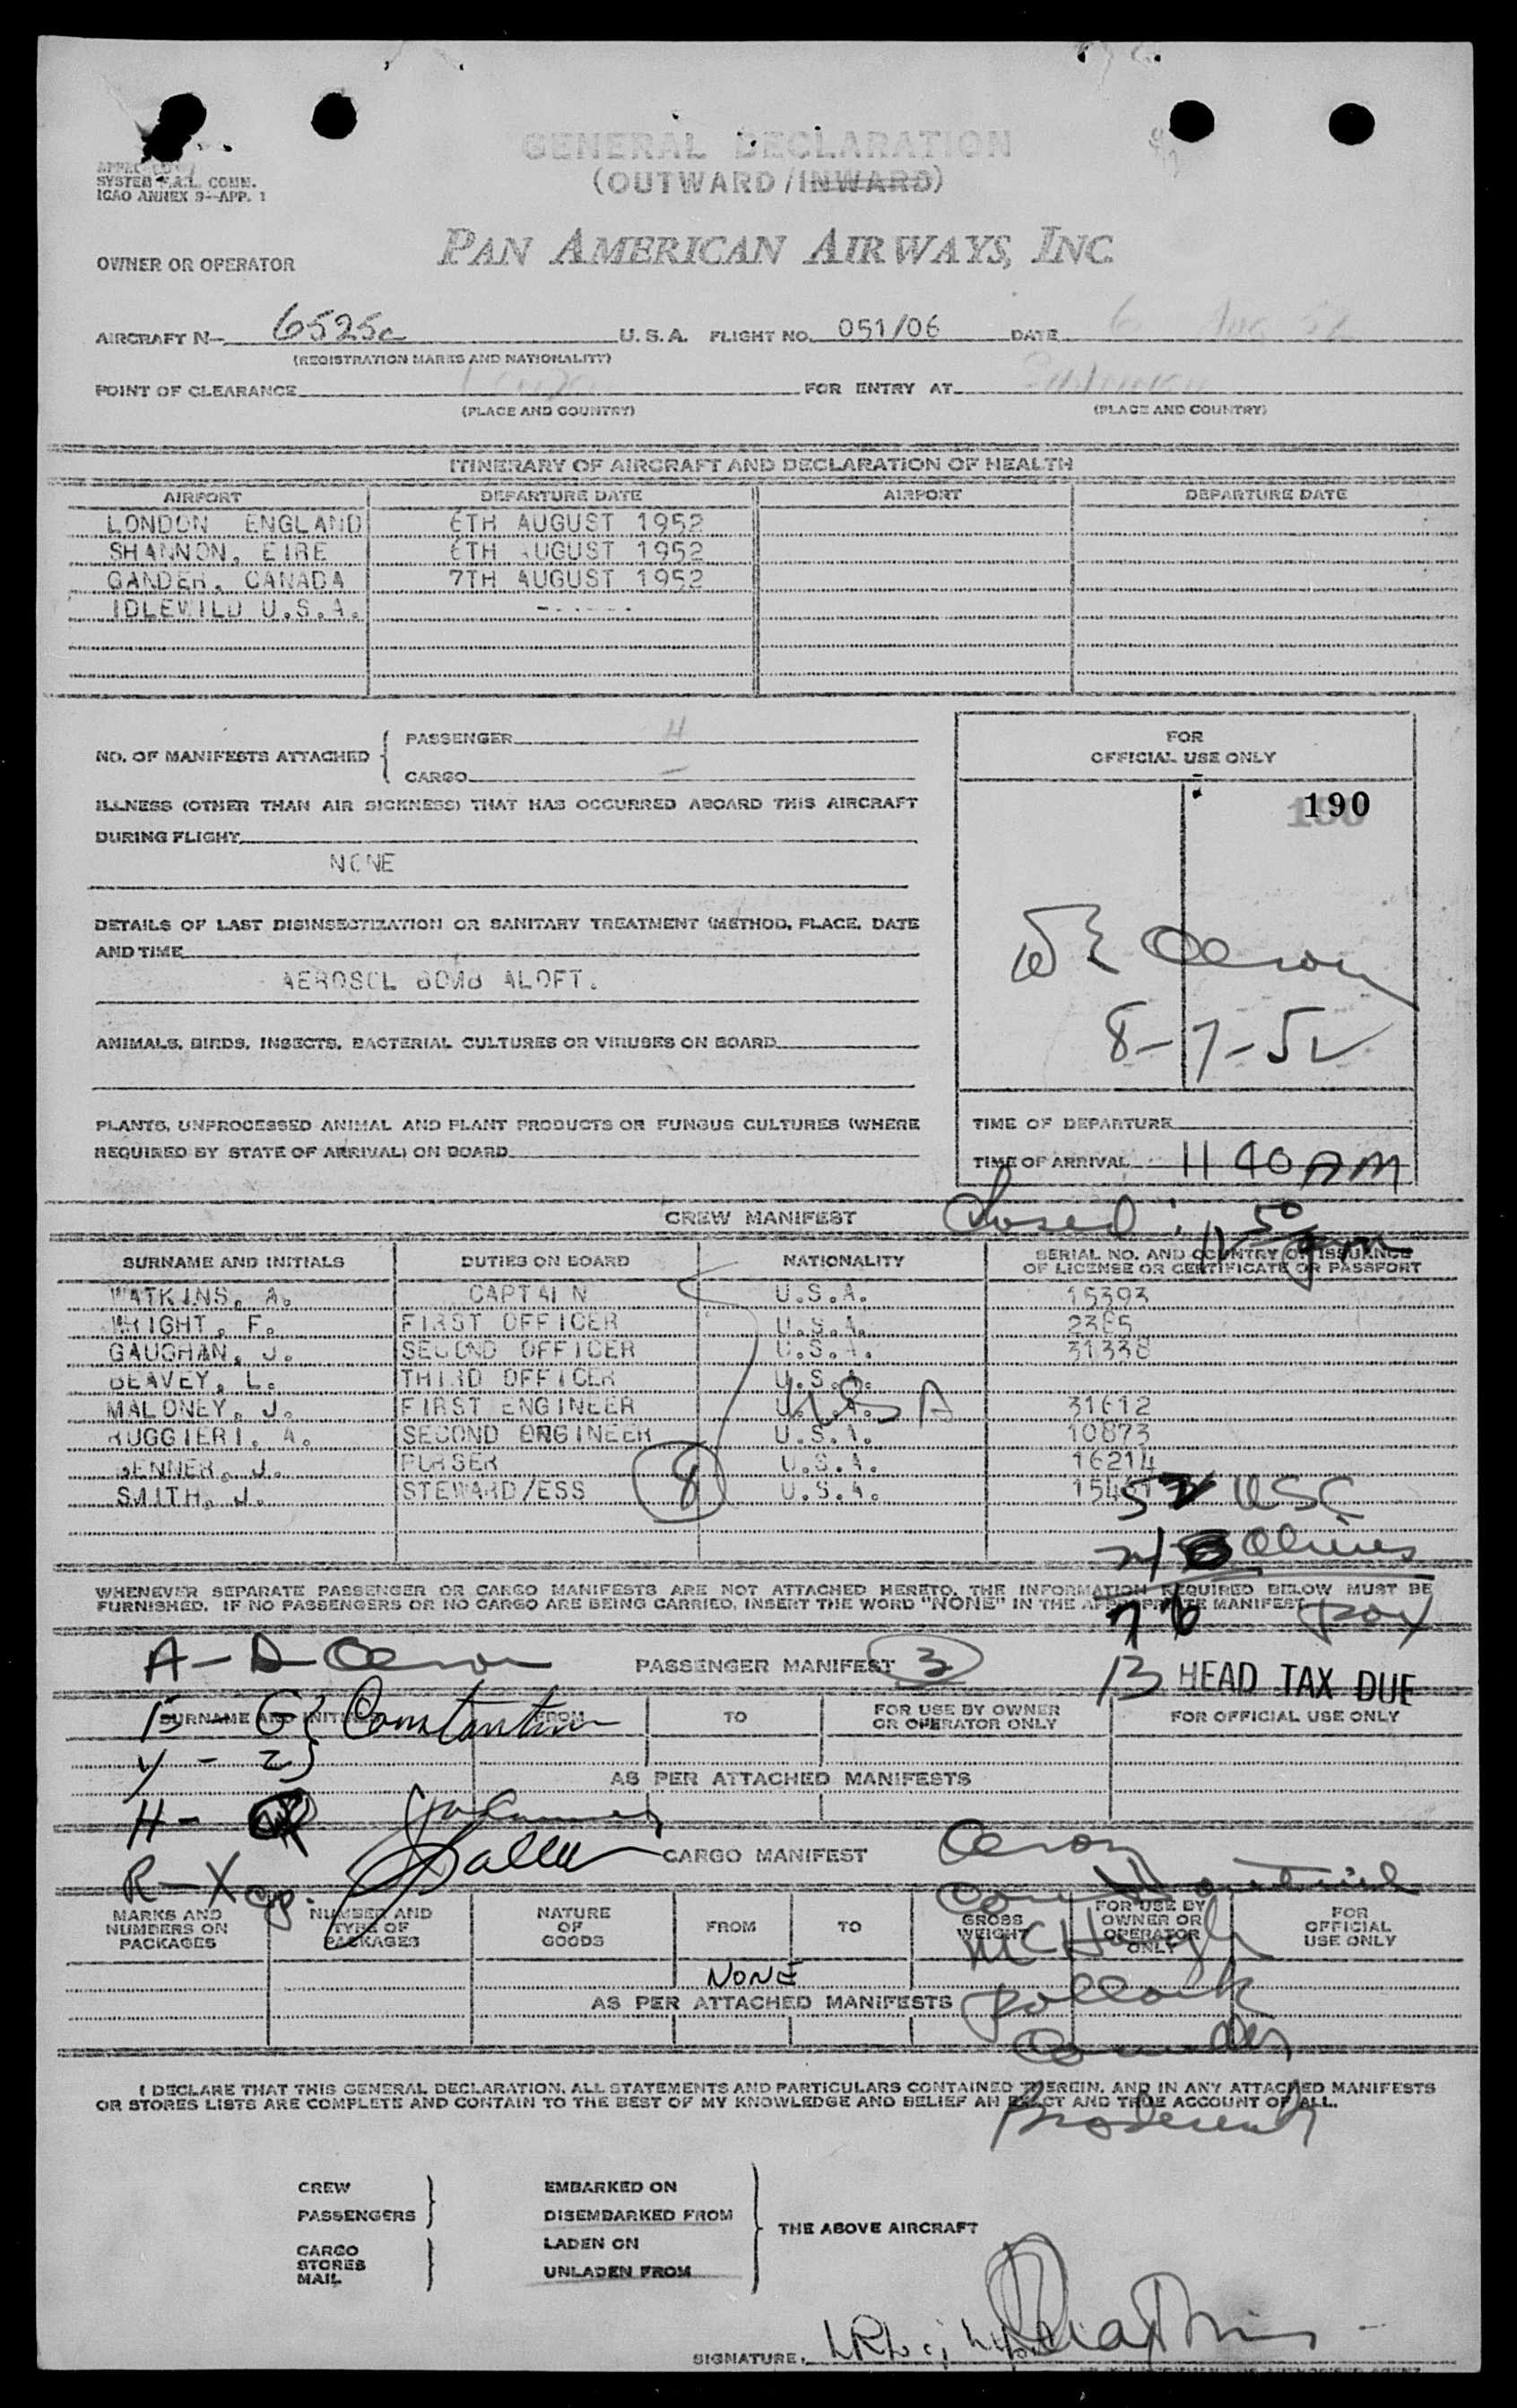 GENERAL DECLARATION
(OUTWARD/INWARD)
SYSTEM F.A.L. COMM.
ICAO ANNEX 9—APP. 1
OWNER OR OPERATOR PAN AMERICAN AIRWAYS, INC.
AIRCRAFT N- 6525c U. S. A. FLIGHT NO. 051/06 DATE 6 Aug 52
(REGISTRATION MARKS AND NATIONALITY)
POINT OF CLEARANCE FOR ENTRY AT
(PLACE AND COUNTRY) (PLACE AND COUNTRY)
ITINERARY OF AIRCRAFT AND DECLARATION OF HEALTH
AIRPORT DEPARTURE DATE AIRPORT DEPARTURE DATE
LONDON ENGLAND 6TH AUGUST 1952
SHANNON, EIRE 6TH AUGUST 1952
GANDER, CANADA 7TH AUGUST 1952
IDLEWILD U.S.A. ------
NO. OF MANIFESTS ATTACHED { PASSENGER 4
CARGO —
FOR
OFFICIAL USE ONLY
190
ILLNESS (OTHER THAN AIR SICKNESS) THAT HAS OCCURRED ABOARD THIS AIRCRAFT
DURING FLIGHT
NONE
DETAILS OF LAST DISINSECTIZATION OR SANITARY TREATMENT (METHOD, PLACE, DATE
AND TIME
AEROSOL BOMB ALOFT.
8-7-52
ANIMALS, BIRDS, INSECTS, BACTERIAL CULTURES OR VIRUSES ON BOARD
PLANTS, UNPROCESSED ANIMAL AND PLANT PRODUCTS OR FUNGUS CULTURES (WHERE
REQUIRED BY STATE OF ARRIVAL) ON BOARD
TIME OF DEPARTURE
TIME OF ARRIVAL 11 40 AM
Closed
CREW MANIFEST
SURNAME AND INITIALS DUTIES ON BOARD NATIONALITY SERIAL NO. AND COUNTRY OF ISSUANCE
OF LICENSE OR CERTIFICATE OR PASSPORT
WATKINS, A. CAPTAIN U.S.A. 15393
WRIGHT, F. FIRST OFFICER U.S.A. 2365
GAUGHAN, J. SECOND OFFICER U.S.A. 31338
BEAVEY, L. THIRD OFFICER U.S.A.
MALONEY, J. FIRST ENGINEER U.S.A. 31612
RUGGIERI, A. SECOND ENGINEER U.S.A. 10873
BENNER, J. PURSER U.S.A. 16214
SMITH, J. STEWARD/ESS U.S.A.
USA
8
USC
Aliens
76 pax
WHENEVER SEPARATE PASSENGER OR CARGO MANIFESTS ARE NOT ATTACHED HERETO, THE INFORMATION REQUIRED BELOW MUST BE
FURNISHED. IF NO PASSENGERS OR NO CARGO ARE BEING CARRIED, INSERT THE WORD "NONE" IN THE APPROPRIATE MANIFEST
A-D
PASSENGER MANIFEST 3
13 HEAD TAX DUE
SURNAME AND INITIALS FROM TO FOR USE BY OWNER
OR OPERATOR ONLY FOR OFFICIAL USE ONLY
E - G} Constantine
Y - Z}
AS PER ATTACHED MANIFESTS
H-
R-X
CARGO MANIFEST
MARKS AND
NUMBERS ON
PACKAGES NUMBER AND
TYPE OF
PACKAGES NATURE
OF
GOODS FROM TO GROSS
WEIGHT FOR USE BY
OWNER OR
OPERATOR
ONLY FOR
OFFICIAL
USE ONLY
McHugh
NONE
AS PER ATTACHED MANIFESTS
Pollock
I DECLARE THAT THIS GENERAL DECLARATION, ALL STATEMENTS AND PARTICULARS CONTAINED THEREIN, AND IN ANY ATTACHED MANIFESTS
OR STORES LISTS ARE COMPLETE AND CONTAIN TO THE BEST OF MY KNOWLEDGE AND BELIEF AN EXACT AND TRUE ACCOUNT OF ALL.
CREW
PASSENGERS }
CARGO
STORES
MAIL }
EMBARKED ON
DISEMBARKED FROM
LADEN ON
UNLADEN FROM
} THE ABOVE AIRCRAFT
SIGNATURE